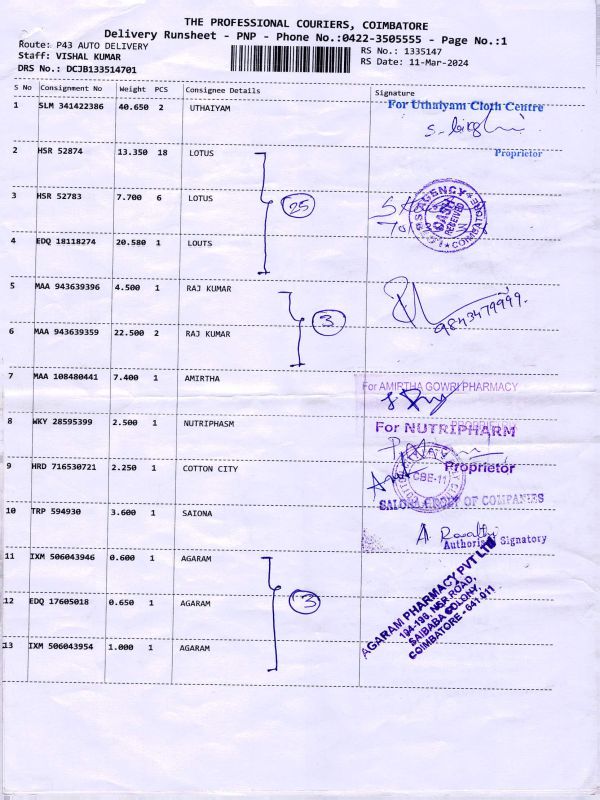 THE PROFESSIONAL COURIERS, COIMBATORE
Delivery Runsheet - PNP - Phone No.:0422-3505555 - Page No.:1
Route: P43 AUTO DELIVERY
Staff: VISHAL KUMAR
DRS No.: DCJB133514701
RS No.: 1335147
RS Date: 11-Mar-2024
S No Consignment No Weight PCS Consignee Details Signature
1 SLM 341422386 40.650 2 UTHAIYAM
For Uthaiyam Cloth Centre
Proprietor
2 HSR 52874 13.350 18 LOTUS
3 HSR 52783 7.700 6 LOTUS
25
AGENCY
CASH
RECEIVED
COIMBATORE
4 EDQ 18118274 20.580 1 LOUTS
5 MAA 943639396 4.500 1 RAJ KUMAR
3
9843479999.
6 MAA 943639359 22.500 2 RAJ KUMAR
7 MAA 108480441 7.400 1 AMIRTHA
For AMIRTHA GOWRI PHARMACY
8 WKY 28595399 2.500 1 NUTRIPHASM
For NUTRIPHARM
Proprietor
9 HRD 716530721 2.250 1 COTTON CITY
CBE-11
OF COMPANIES
10 TRP 594930 3.600 1 SAIONA
Signatory
11 IXM 506043946 0.600 1 AGARAM
12 EDQ 17605018 0.650 1 AGARAM
3
13 IXM 506043954 1.000 1 AGARAM
AGARAM PHARMACY PVT LTD
194-196, NSR ROAD,
SAIBABA COLONY,
COIMBATORE - 641 011